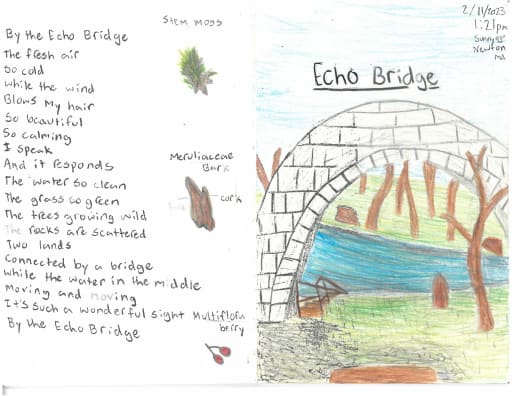 By the Echo Bridge
The fresh air
So cold
while the wind
Blows My hair
So beautiful
So calming
I speak
And it responds
The water so clean
The grass so green
The trees growing wild
The rocks are scattered
Two lands
Connected by a bridge
while the water in the middle
Moving and moving
It's such a wonderful sight
By the Echo Bridge
Stem Moss
Meruliaceae
Bark
cork
Multiflora
berry
2/11/2023
1:21pm
Sunny
Newton
MA
Echo Bridge